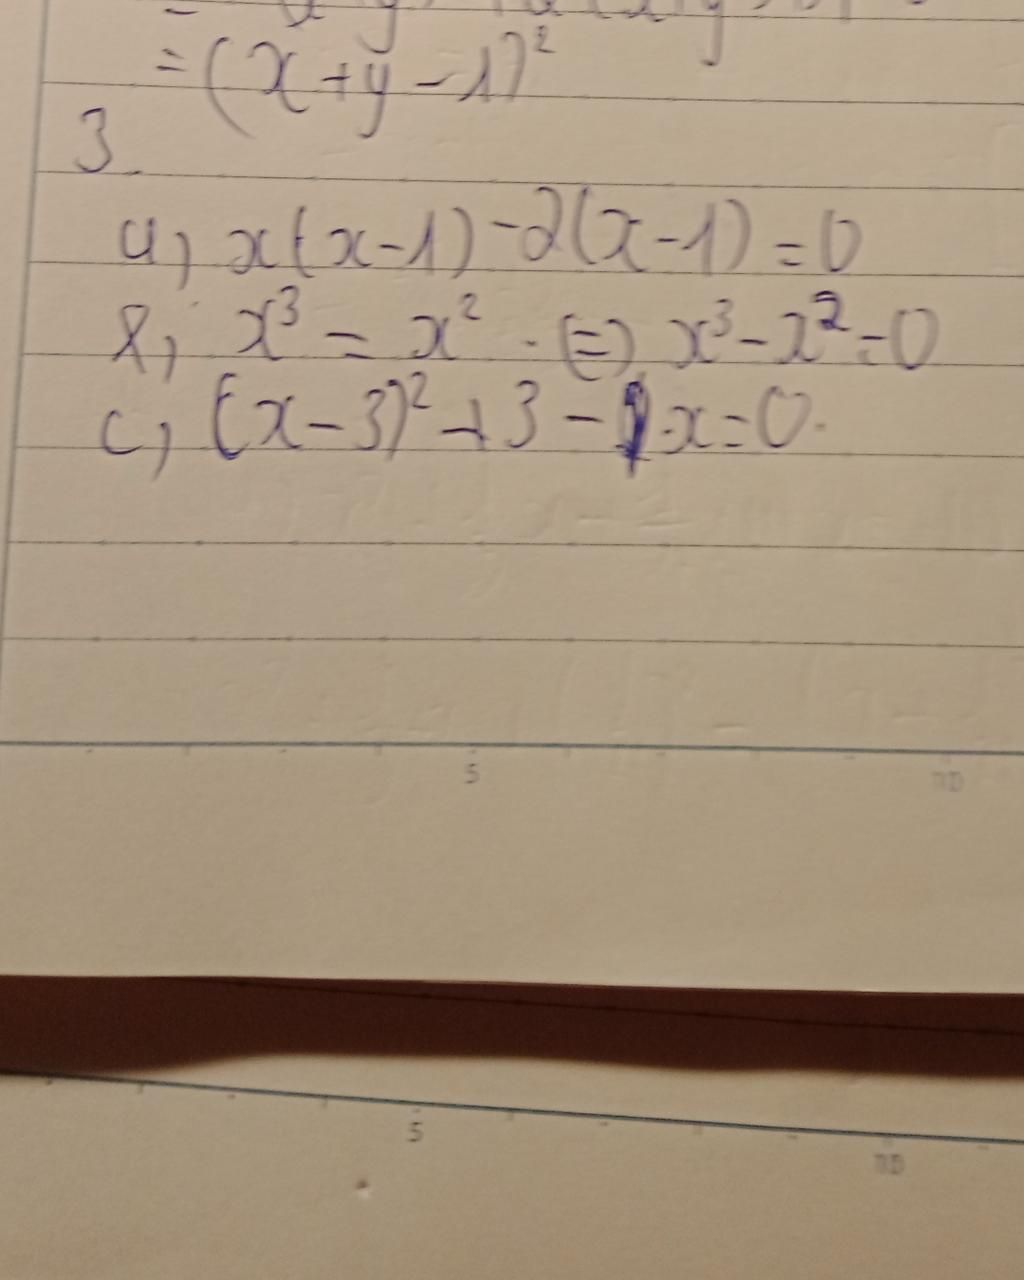 = (x+y-1)²
3
a, x(x-1)-2(x-1)=0
b, x³ = x² . (=) x³-x²=0
c, (x-3)²+3- x=0.
5
10
5
10